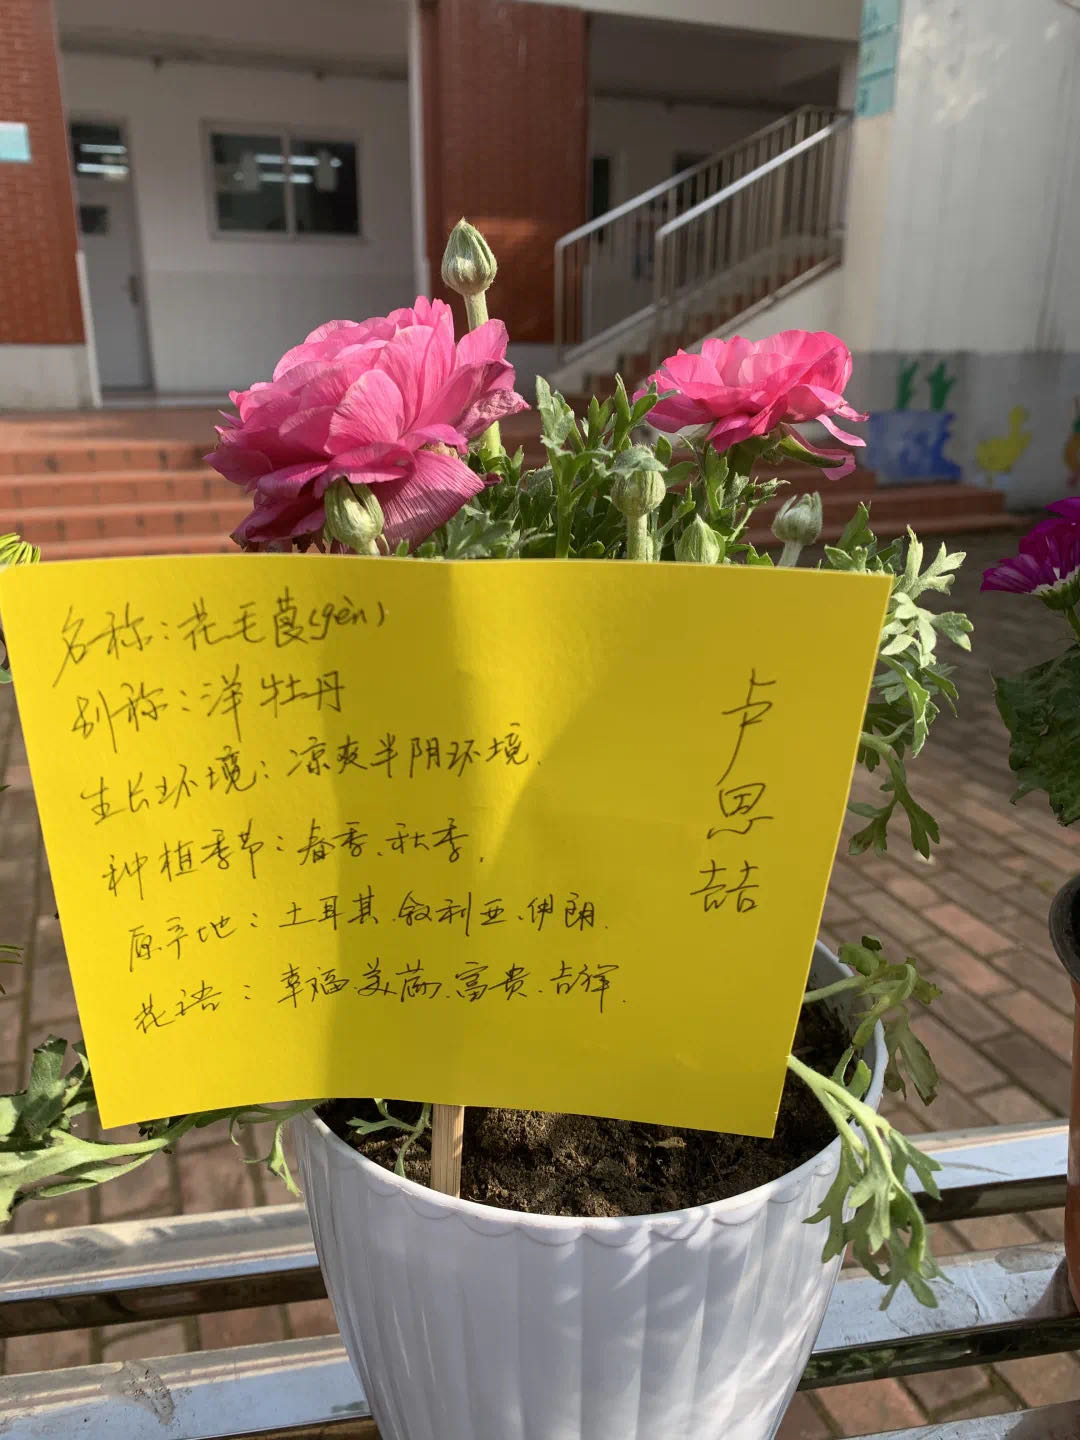 名称：花毛茛(gèn)
别称：洋牡丹
生长环境：凉爽半阴环境.
种植季节：春季、秋季.
原产地：土耳其、叙利亚、伊朗.
花语：幸福、美丽、富贵、吉祥.
卢恩喆